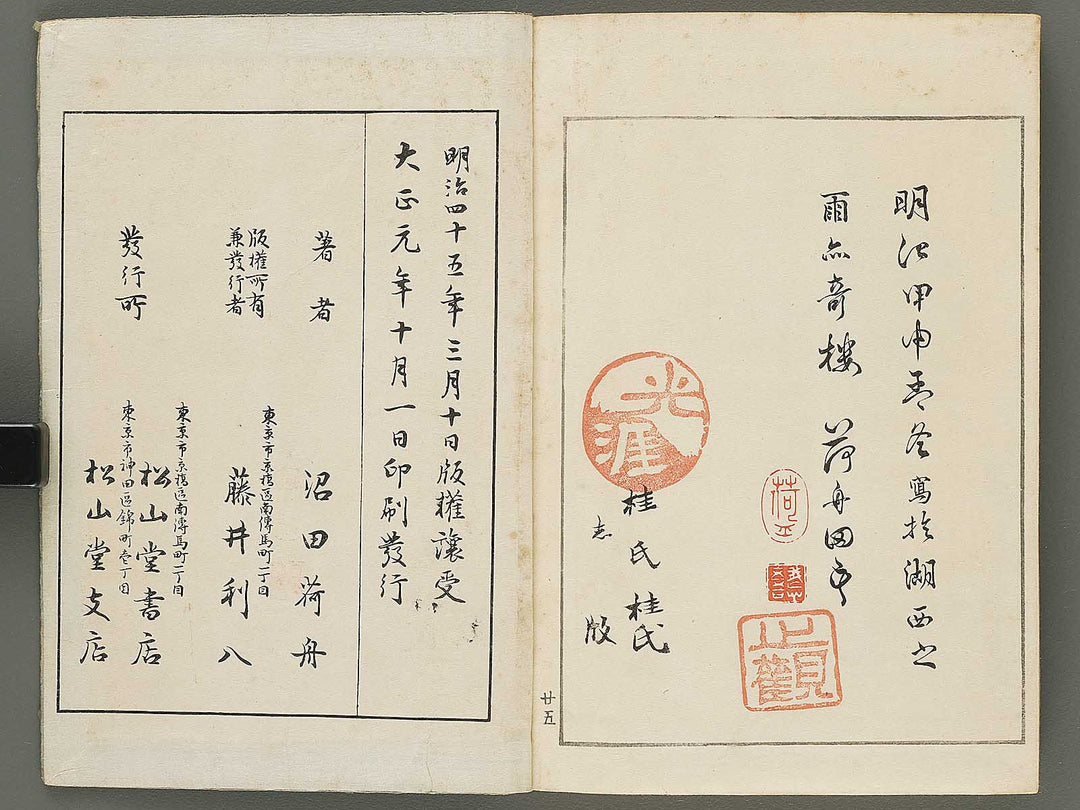 明治甲申孟冬寫於湖西之
雨亦奇樓 荷舟田
荷
止觀
光
涯
桂氏桂氏
志
版
廿五
明治四十五年三月十日版權讓受
大正元年十月一日印刷發行
著者
沼田荷舟
版權所有
兼發行者
東京市京橋區南傳馬町一丁目
藤井利八
發行所
東京市京橋區南傳馬町一丁目
松山堂書店
東京市神田區錦町壱丁目
松山堂支店